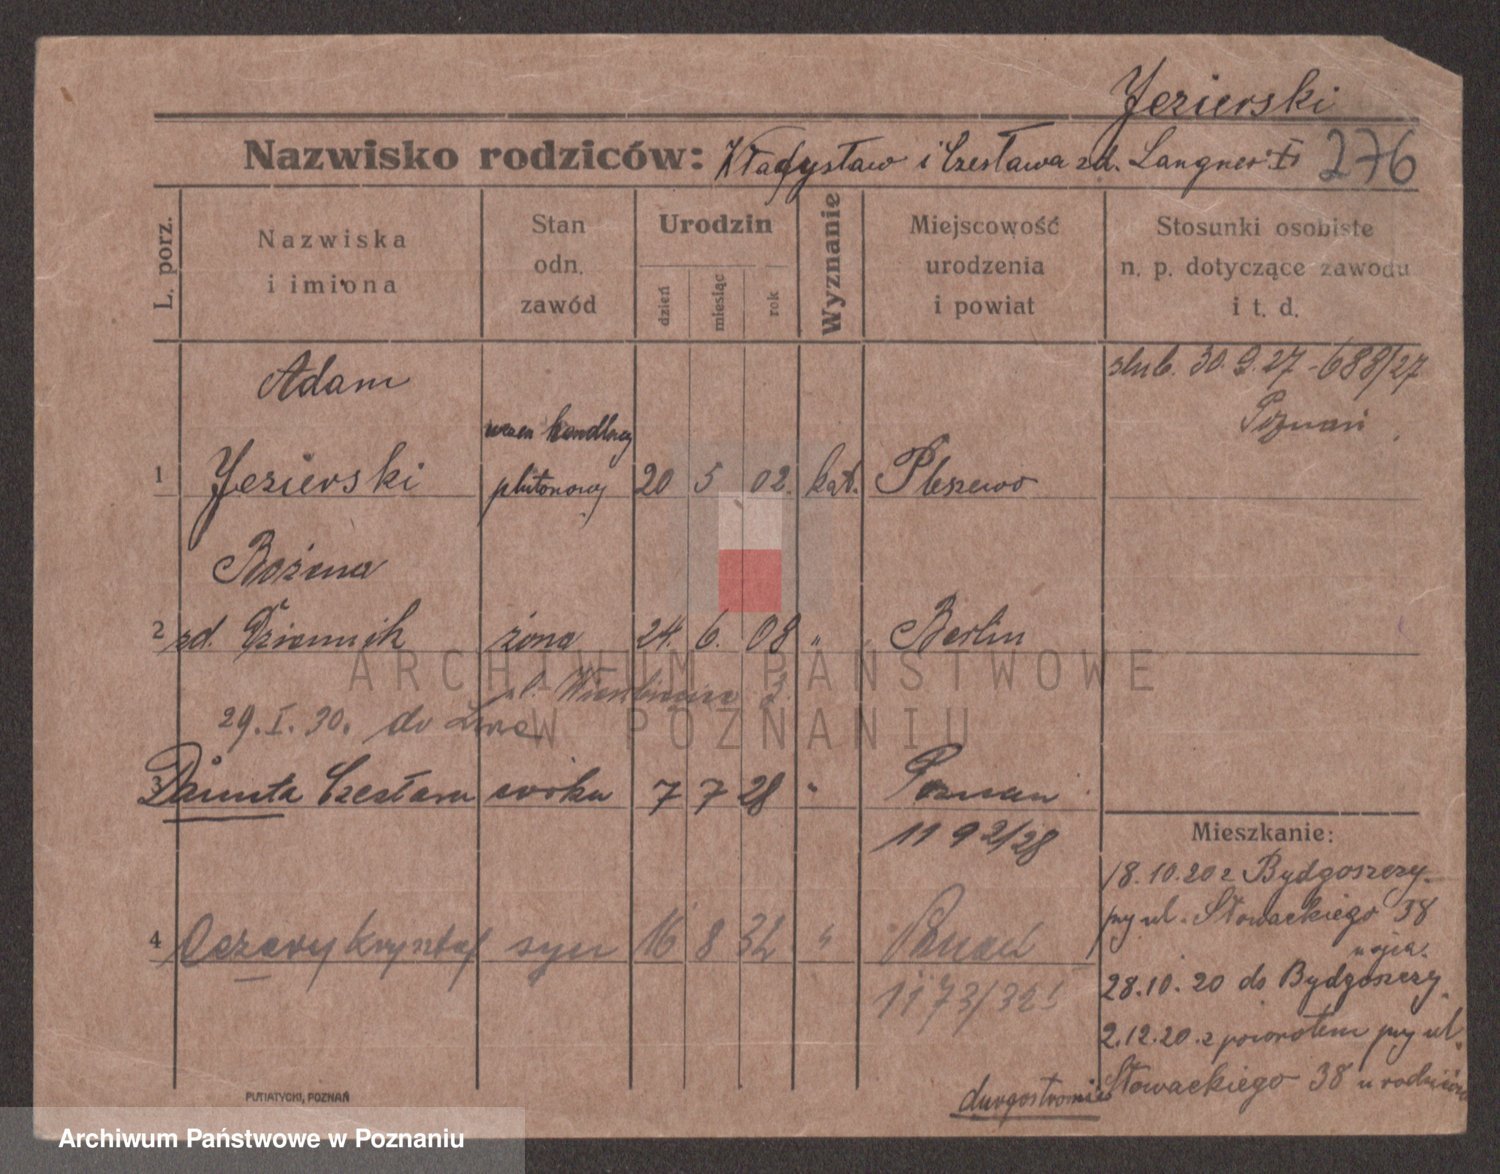 Jezierski
Nazwisko rodziców: Władysław i Czesława zd. Langner
276
L. porz.
Nazwiska
i imiona
Stan
odn.
zawód
Urodzin
dzień
miesiąc
rok
Wyznanie
Miejscowość
urodzenia
i powiat
Stosunki osobiste
n. p. dotyczące zawodu
i t. d.
Adam
ślub. 30.9.27 - 688/27
Poznań
uczeń handlowy
1 Jezierski plutonowy 20 5 02. kat. Pleszewo
Bożena
2 zd. Dziennik żona 24. 6. 08 " Berlin
pl. 3.
29.I.30. do
3 Danuta Czesława córka 7 7 28 " Poznań
1192/28
Mieszkanie:
18.10.20 z Bydgoszczy
przy ul. Słowackiego 38
u ojca.
4 Cezary Krysztof syn 16 8 32 " Poznań
1173/32
28.10.20 do Bydgoszczy.
2.12.20. z powrotem przy ul.
Słowackiego 38 u rodziców
dwugostronnie
PUTIATYCKI, POZNAŃ
ARCHIWUM PAŃSTWOWE
W POZNANIU
Archiwum Państwowe w Poznaniu